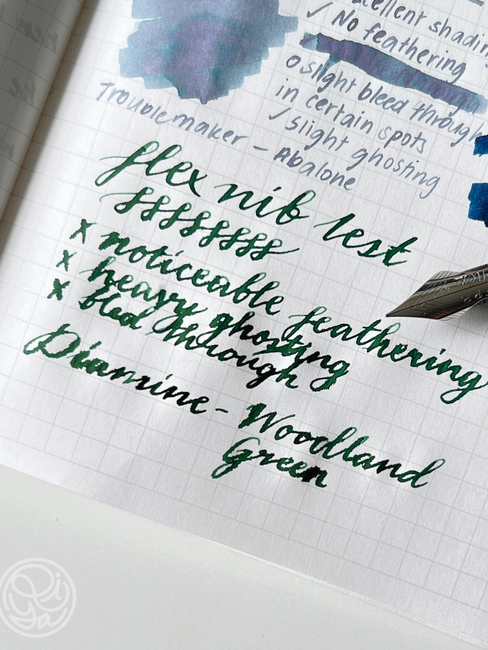 excellent shading
✓ No feathering
o slight bleed through
in certain spots
✓ slight ghosting
Troublemaker - Abalone
flex nib test
ssssssss
x noticeable feathering
x heavy ghosting
x bled through
Diamine - Woodland
Green